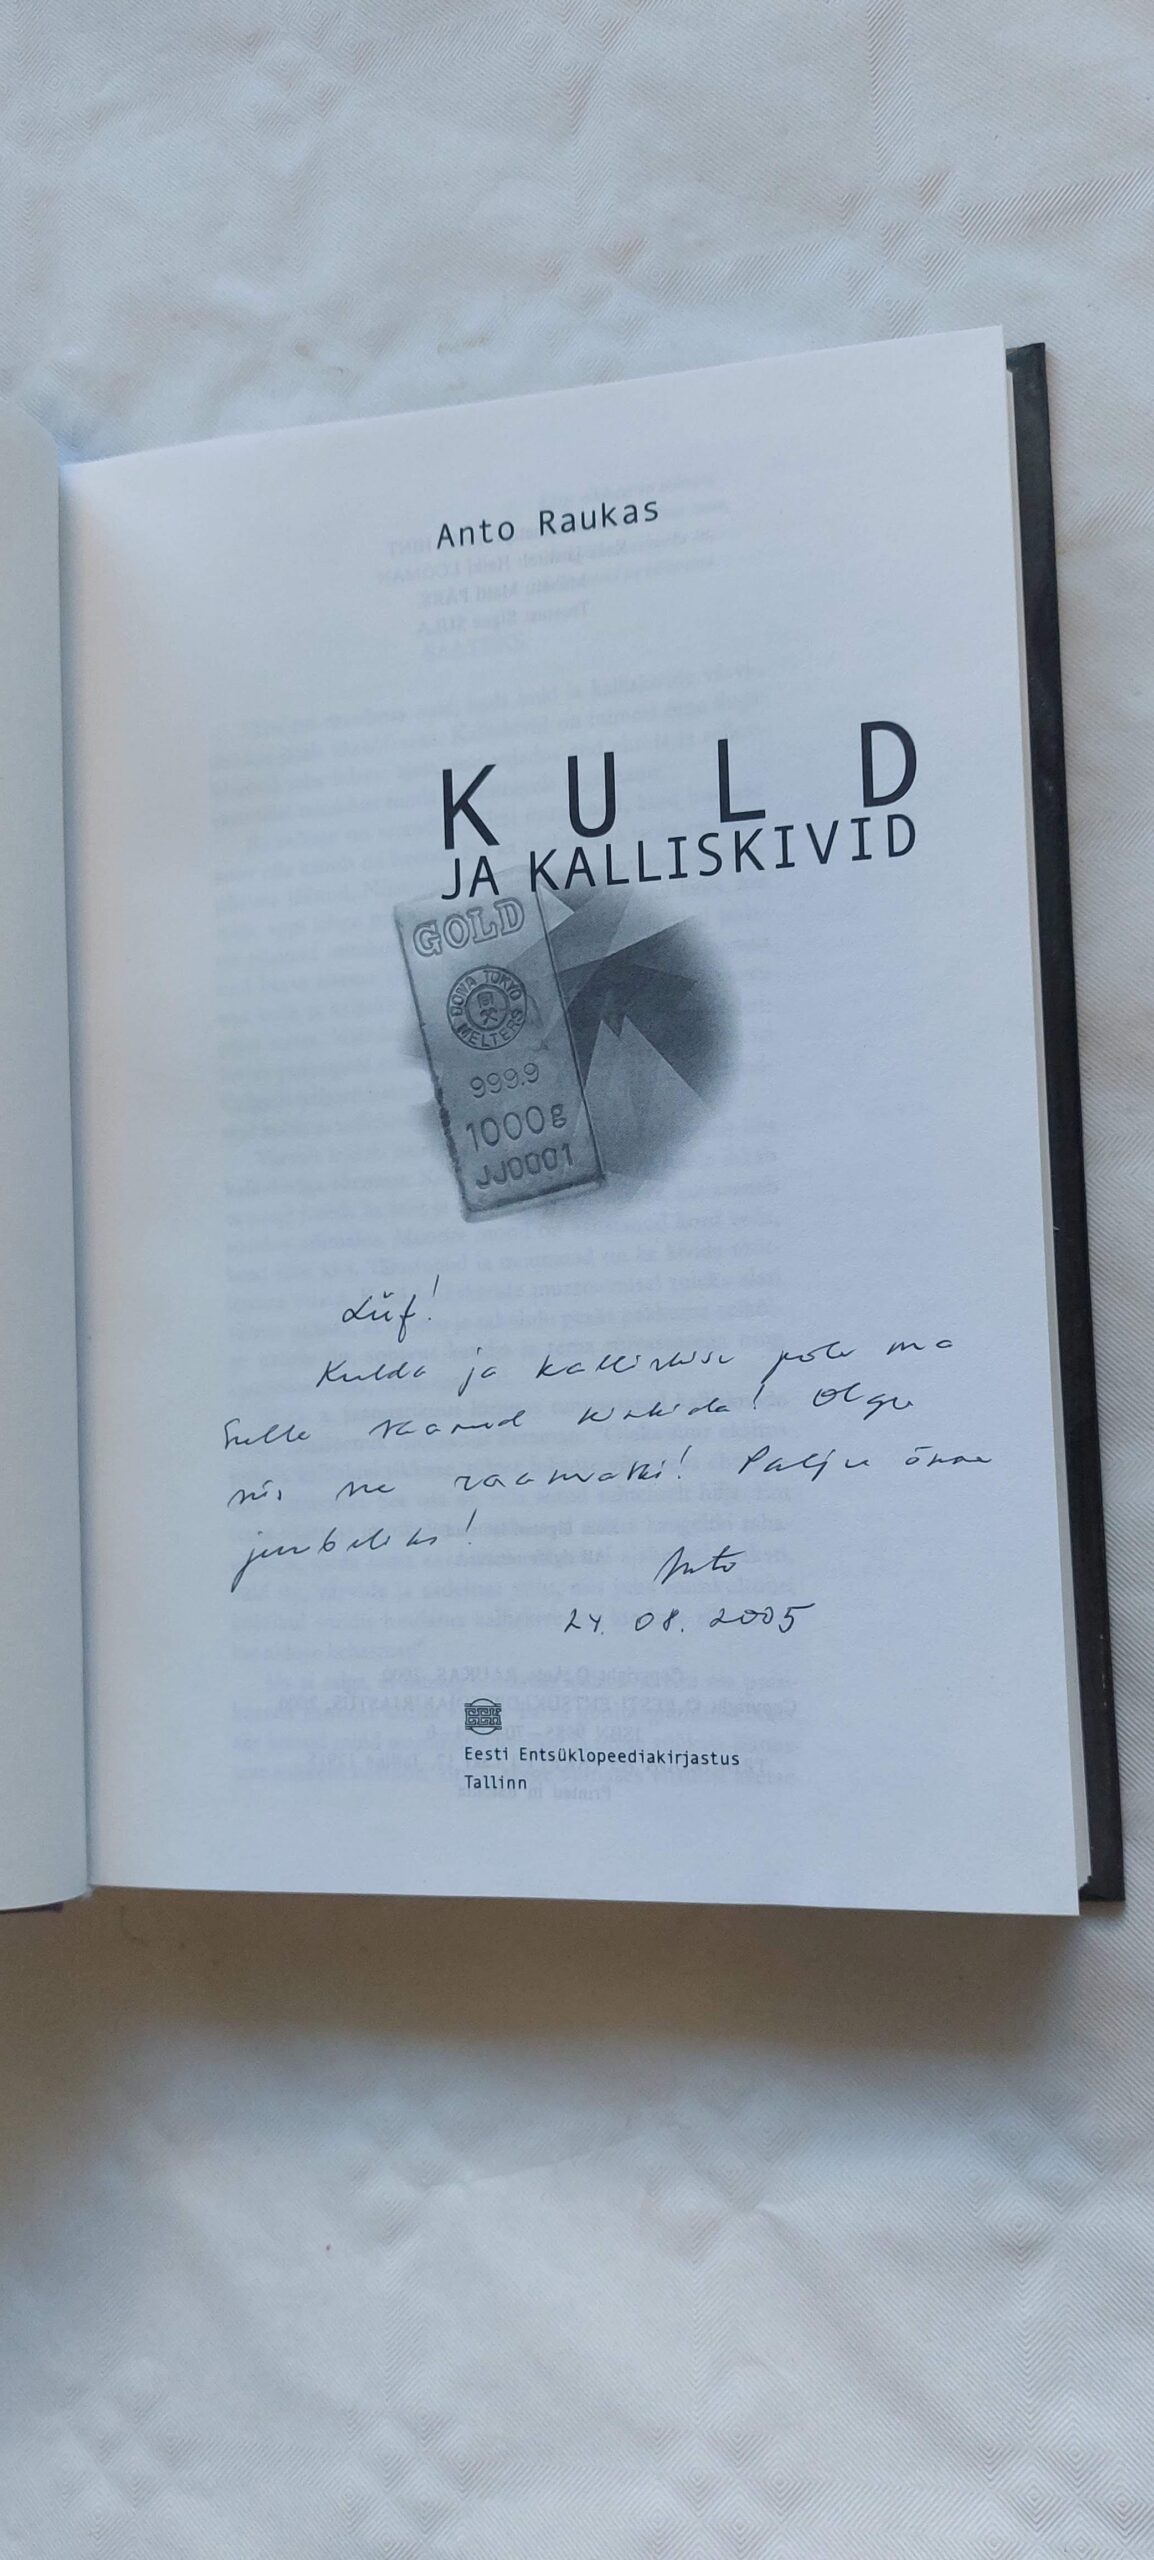 Anto Raukas
KULD
JA KALLISKIVID
GOLD
DOWA TOKYO
MELTERS
999.9
1000g
JJ0001
Kulda ja kalliskive pole ma
Sulle saanud kinkida! Olgu
siis see raamatki! Palju õnne
juubeliks!
Anto
24.08.2005
Eesti Entsüklopeediakirjastus
Tallinn